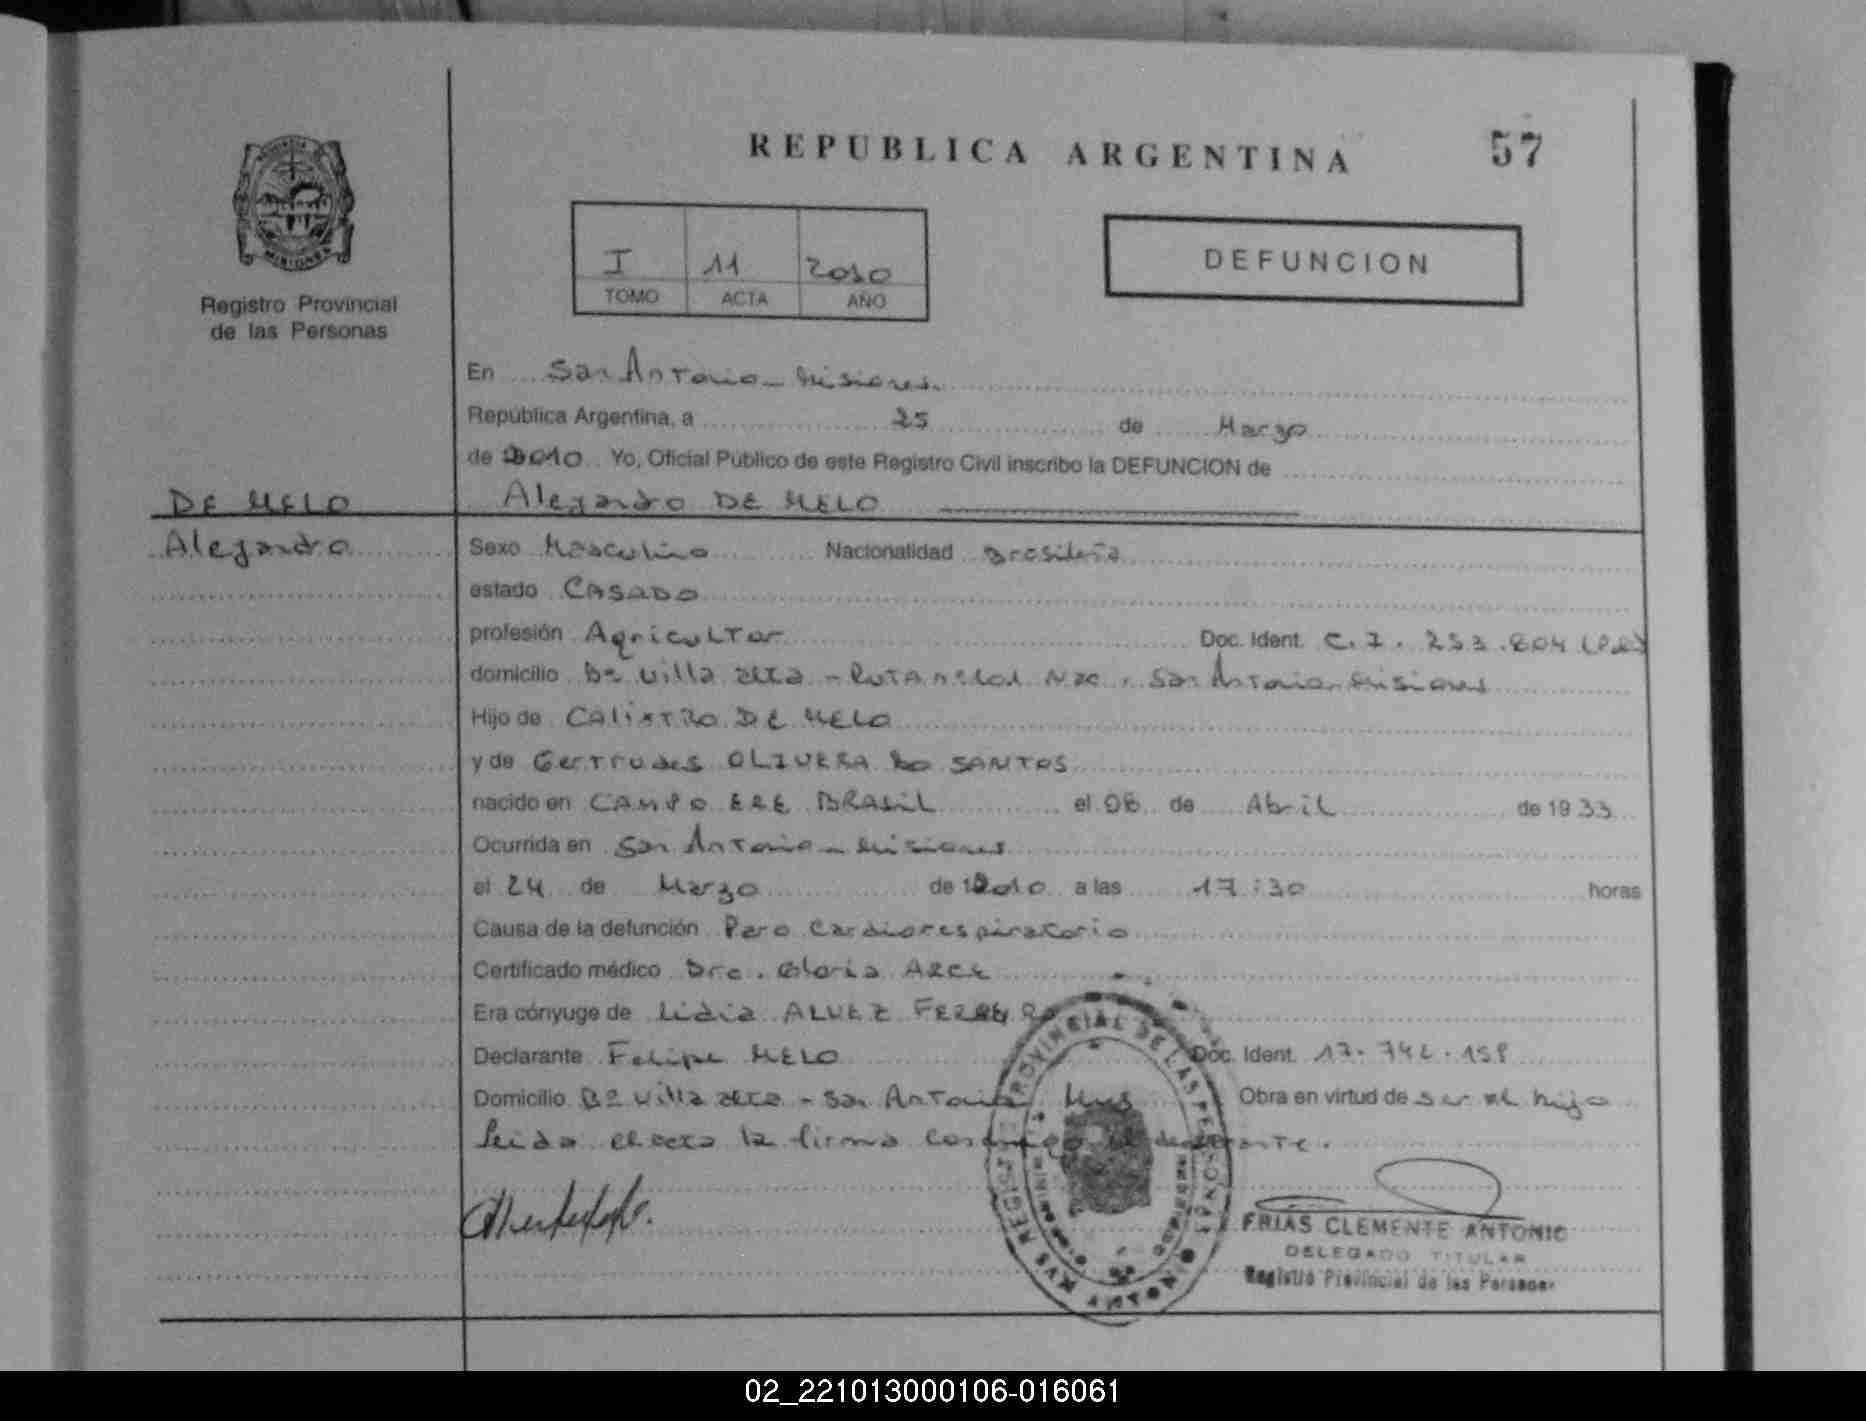 REPUBLICA ARGENTINA
57
PROVINCIA
MISIONES
Registro Provincial
de las Personas
I 11 2010
TOMO ACTA AÑO
DEFUNCION
En San Antonio - Misiones.
República Argentina, a 25 de Marzo
de 2010 Yo, Oficial Público de este Registro Civil inscribo la DEFUNCION de
DE MELO
Alejandro
Alejandro DE MELO
Sexo Masculino Nacionalidad Brasileña
estado CASADO
profesión Agricultor Doc. Ident. C.I. 253.804
domicilio Bº Villa alta - RUTA Nac. San Antonio Misiones
Hijo de CALIXTRO DE MELO
y de Gertrudes OLIVERA Do SANTOS
nacido en CAMPO ERE BRASIL el 08 de Abril de 1933
Ocurrida en San Antonio - Misiones
el 24 de Marzo de 2010 a las 17:30 horas
Causa de la defunción Paro Cardiorespiratorio
Certificado médico Dra. Gloria ARCE
Era cónyuge de Lidia ALVEZ
Declarante Felipe MELO Doc. Ident. 17.742.158
Domicilio Bº Villa alta - San Antonio Mnes Obra en virtud de ser el hijo
Leida el acta la firma conmigo el declarante.
PROVINCIAL DE LAS PERSONAS
FRIAS CLEMENTE ANTONIO
DELEGADO TITULAR
Registro Provincial de las Personas
02_221013000106-016061